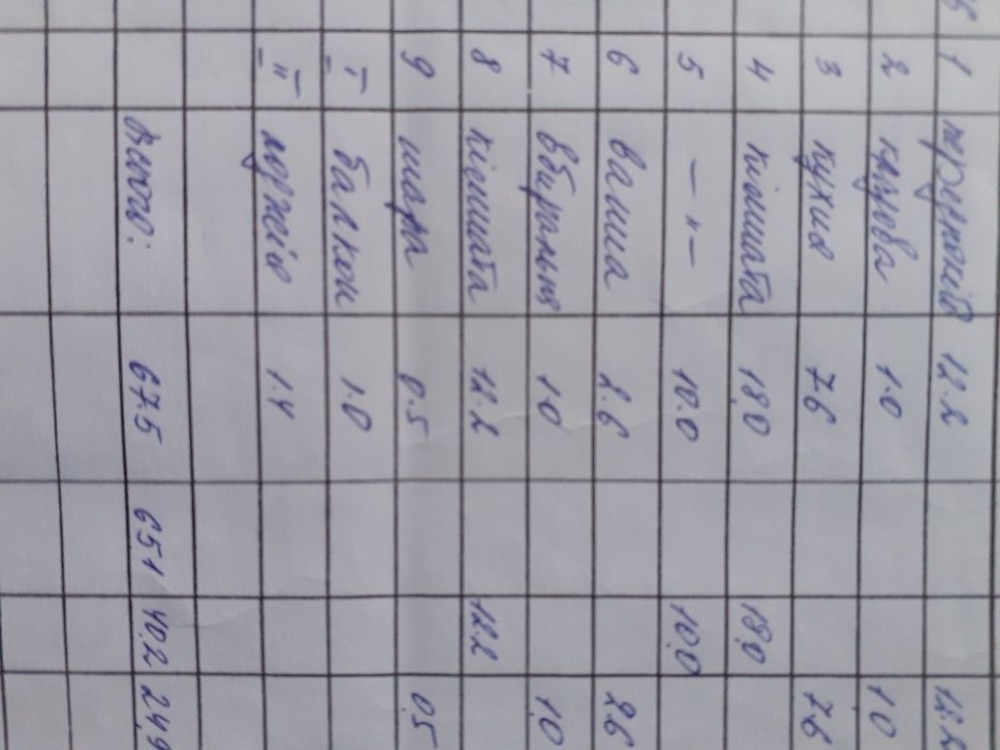 1 передпокій 12.2 12.2
2 кладова 1.0 1.0
3 кухня 7.6 7.6
4 кімната 18.0 18.0
5 — " — 10.0 10.0
6 ванна 2.6 2.6
7 вбиральня 1.0 1.0
8 кімната 12.2 12.2
9 шафа 0.5 0.5
I балкон 1.0
II лоджія 1.4
Всього: 67.5 65.1 40.2 24.9